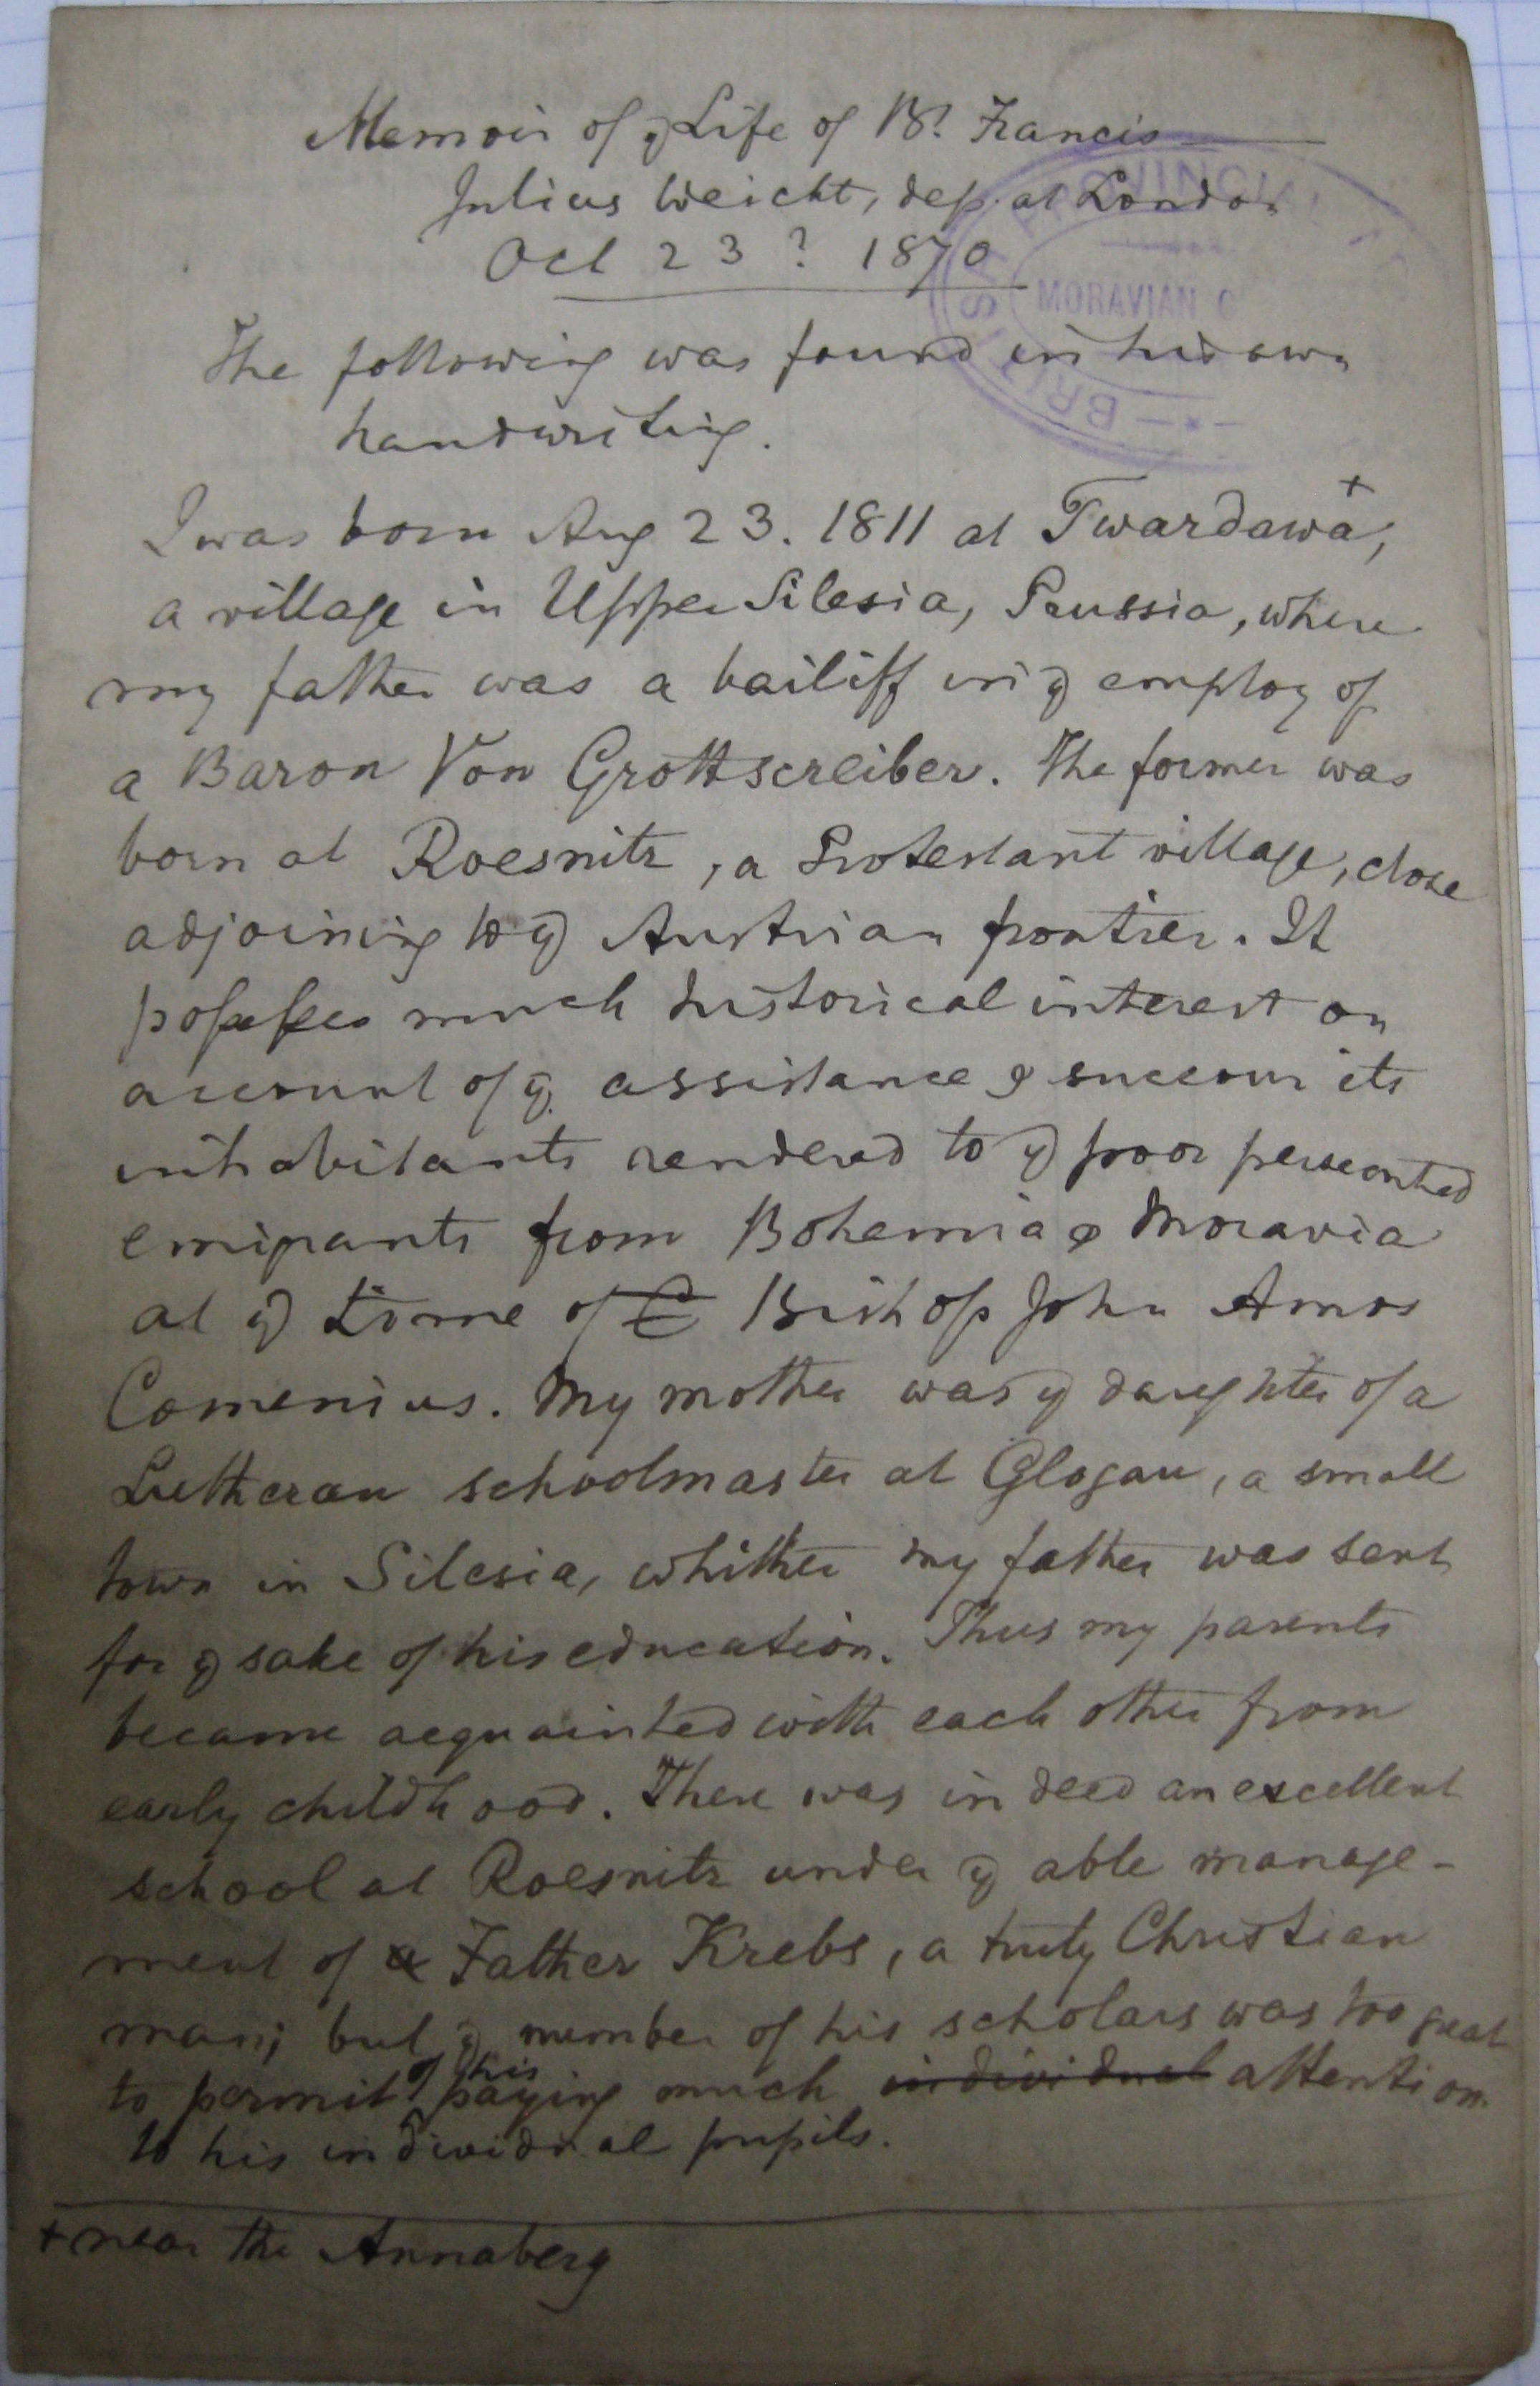 Memoir of ye Life of Br. Francis
Julius Weicht, dep. at London
Oct 23? 1870
PROVINCIAL
MORAVIAN C
BRITISH
The following was found in his own
handwriting.
I was born Aug 23. 1811 at Twardawa+,
a village in Upper Silesia, Prussia, where
my father was a bailiff in ye employ of
a Baron Von Grottscreiber. The former was
born at Roesnitz, a Protestant village, close
adjoining to ye Austrian frontier. It
possesses much historical interest on
account of ye assistance & succour its
inhabitants rendered to ye poor persecuted
emigrants from Bohemia & Moravia
at ye time of C Bishop John Amos
Comenius. My mother was ye daughter of a
Lutheran schoolmaster at Glogau, a small
town in Silesia, whither my father was sent
for ye sake of his education. Thus my parents
became acquainted with each other from
early childhood. There was indeed an excellent
school at Roesnitz under ye able manage-
ment of a Father Krebs, a truly Christian
man; but ye number of his scholars was too great
to permit of his paying much individual attention
to his individual pupils.
+ near the Annaberg